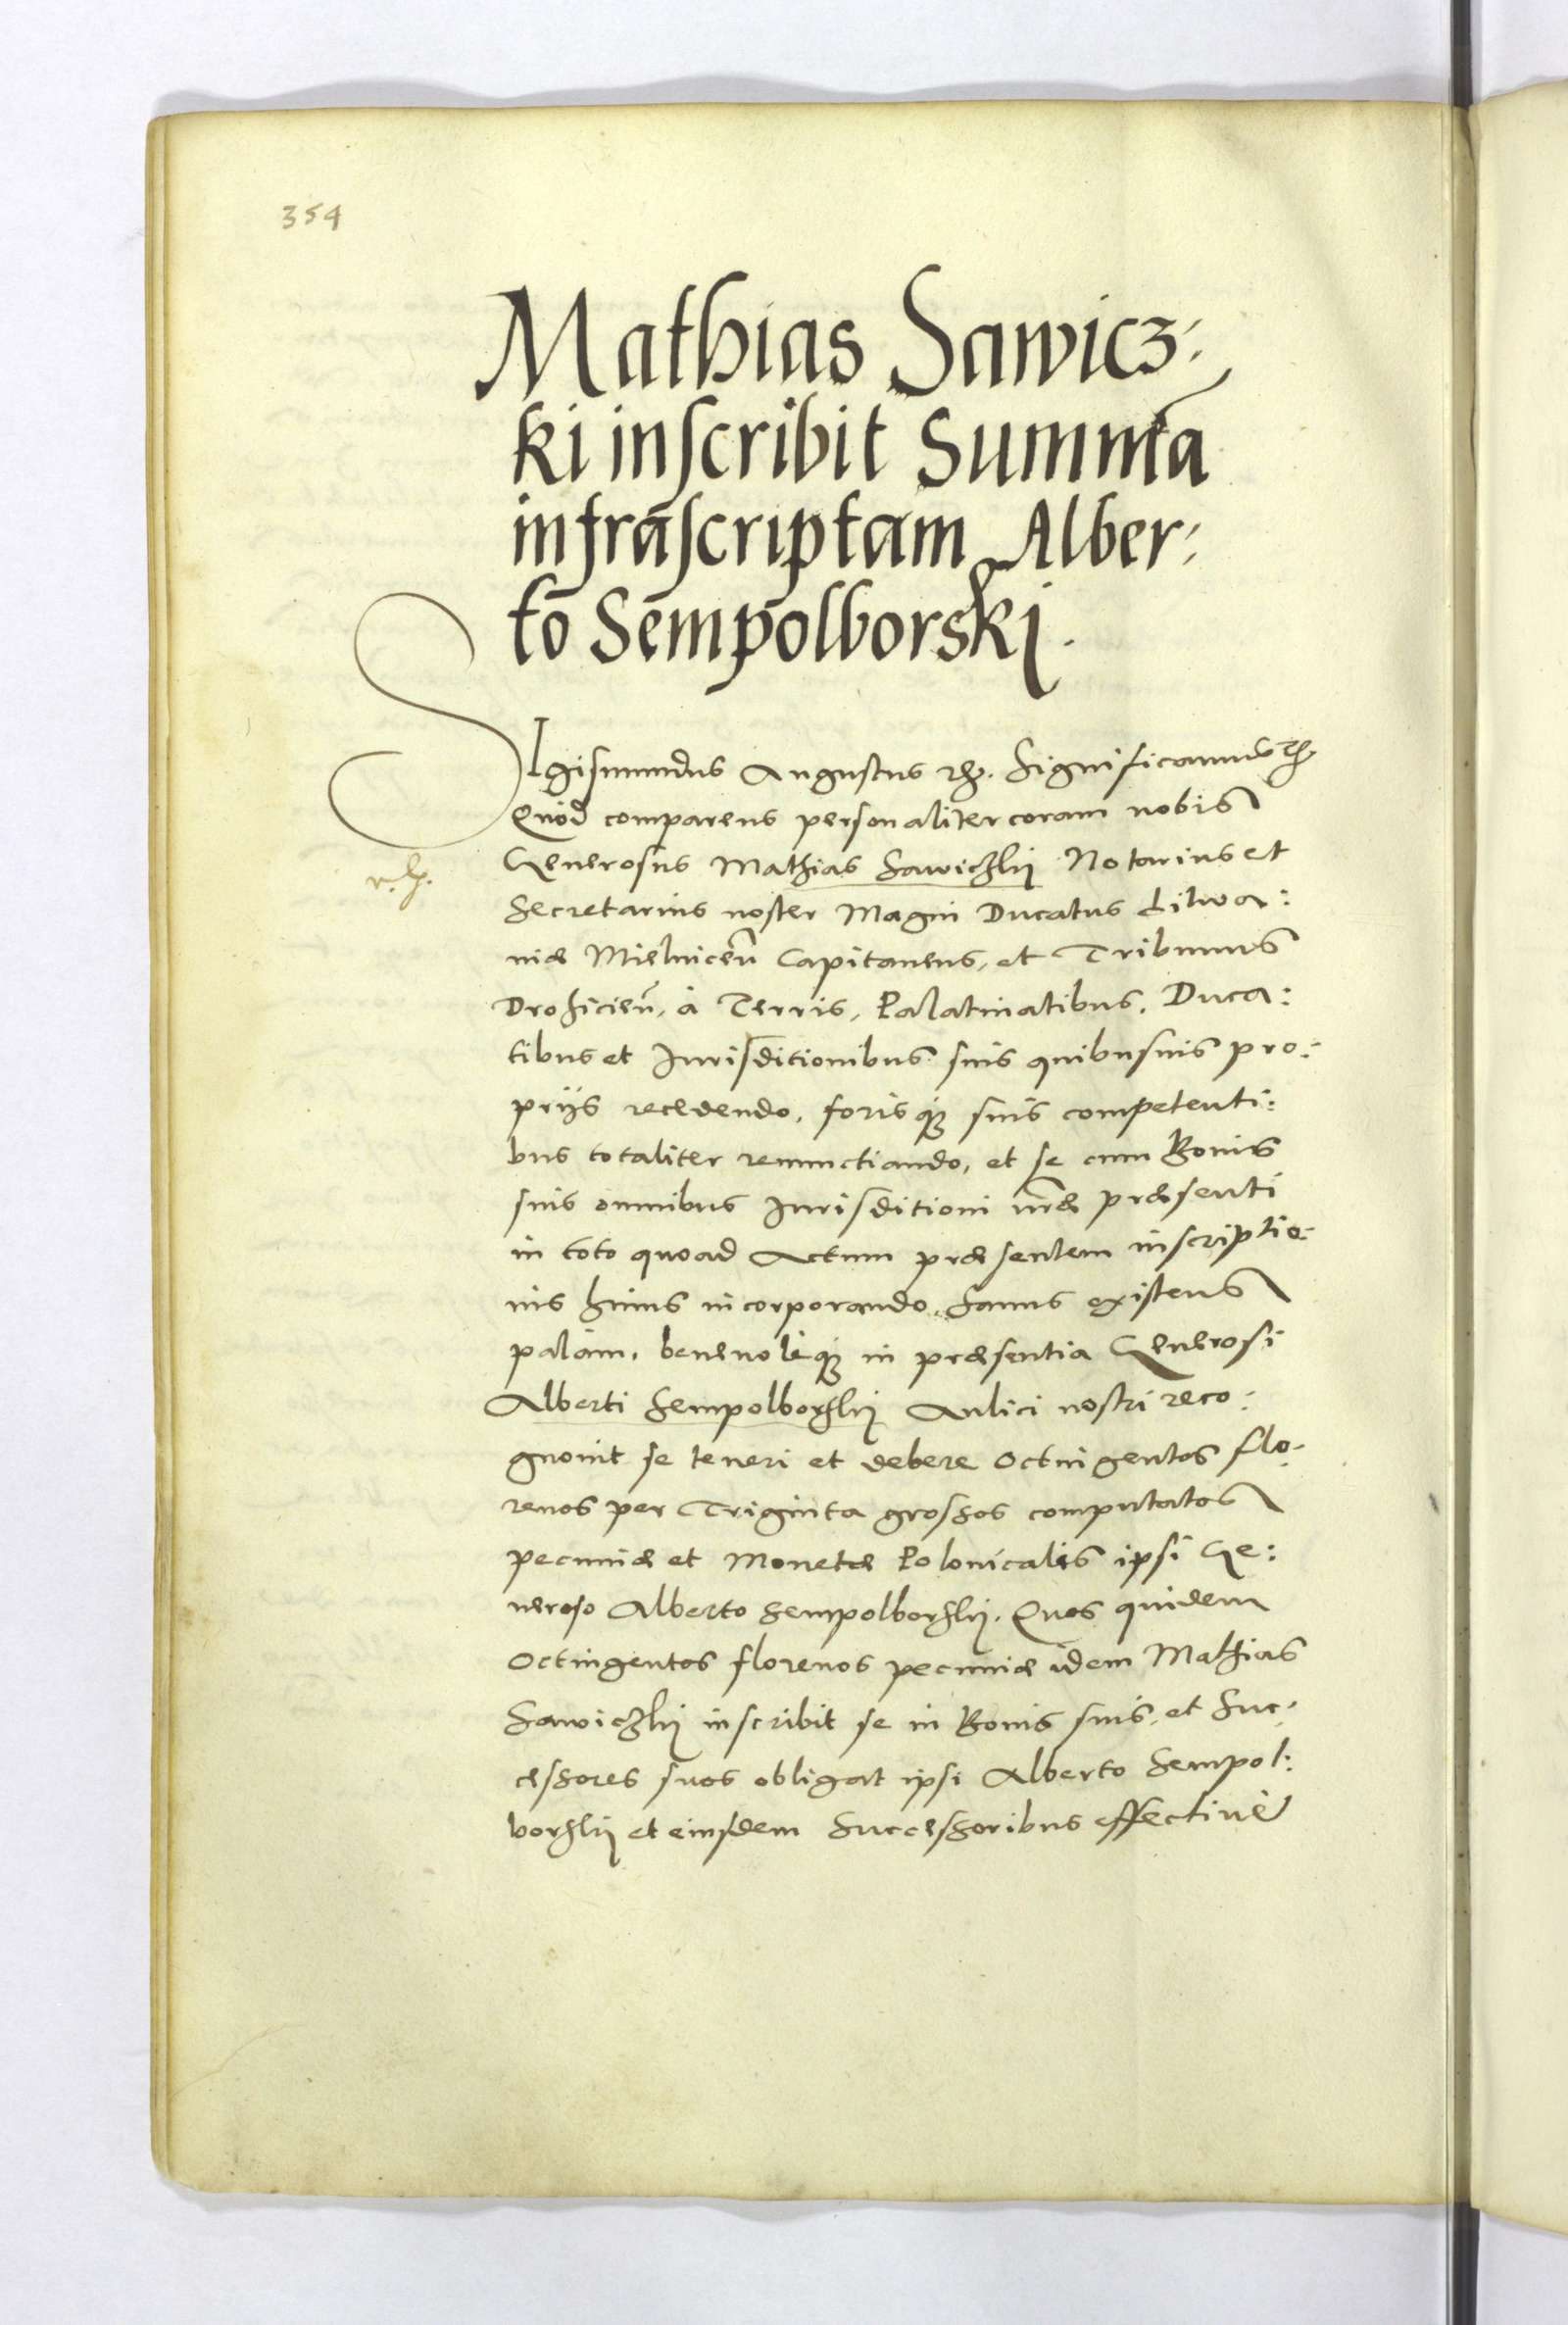 354
Mathias Sawicz-
ki inscribit Summā
infrascriptam Alber-
to Sempolborski.
SIgismundus Augustus etc. Significamus etc.
Quòd comparens personaliter coram nobis
Generosus Mathias Sawiczkij Notarius et
Secretarius noster Magni Ducatus Litwa:
niæ Mielniceñ Capitaneus, et Tribunus
Drohicieñ, à Terris, Palatinatibus, Duca:
tibus et Jurisditionibus suis quibusuis pro:
prijs recedendo, forisq3 suis competenti:
bus totaliter renunctiando, et se cum Bonis
suis omnibus Jurisditioni nr̃æ præsenti
in toto quoad Actum præsentem inscriptio-
nis huius incorporando, Sanus existens
palàm, beneuolèq3 in præsentia Generosi
Alberti Sempolborskij Aulici nostri reco:
gnouit se teneri et debere Octingentos flo-
renos per Triginta grossos computatos
pecuniæ et Monetæ Polonicalis ipsi Ge:
neroso Alberto Sempolborskij. Quos quidem
Octingentos florenos pecuniæ idem Mathias
Sawiczkij inscribit se in Bonis suis, et Suc-
cessores suos obligat ipsi Alberto Sempol:
borskij et eiusdem Successoribus effectiuè